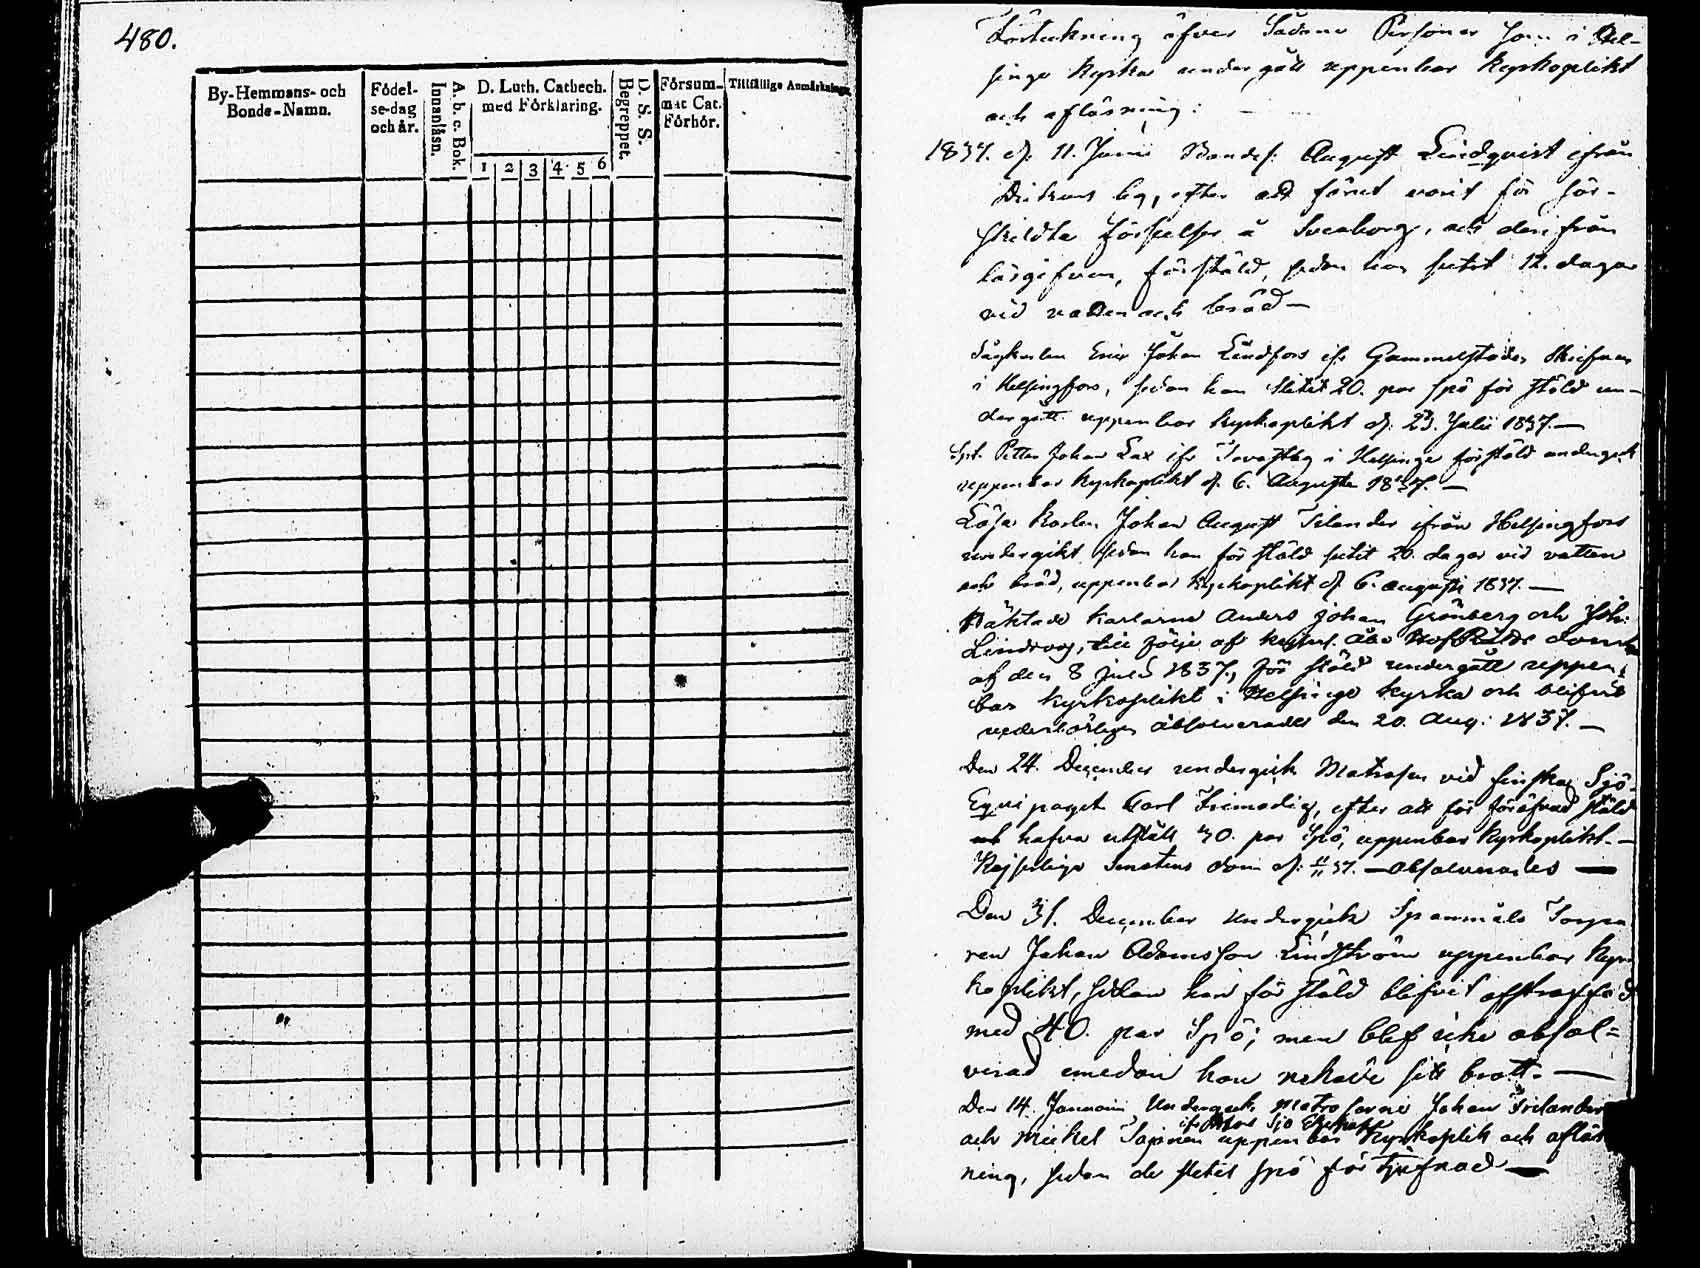 480.
By-Hemmans- och
Bonde-Namn.
Födel-
se-dag
och år.
A. b. c. Bok.
Innanläsn.
D. Luth. Catbech.
med Förklaring.
1 2 3 4 5 6
D. S. S.
Begreppet.
Försum-
mat Cat.
Förhör.
Tillfällige Anmärkningar
Förteckning öfver Sådane Personer som i Hel-
singe Kyrka undergått uppenbar Kyrkoplikt
och aflösning:
1837. d. 11. Junii Bondes. August Lindqvist ifrån
by, efter att förut varit för sär-
skildta förseelser å Sveaborg, och derifrån
lösgifven, för stöld, sedan han sutit 12. dagar
vid vatten och bröd —
Eric Johan Lindfors ifr. Gammelstaden
i Helsingfors, sedan han slitit 20. par spö för stöld un-
dergått uppenbar Kyrkoplikt d. 23. Julii 1837. —
Petter Johan Lax ifr. i Helsinge för stöld undergick
uppenbar Kyrkoplikt d. 6. Augusti 1837. —
Lösa Karlen Johan August Tilander ifrån Helsingfors
undergikt sedan han för stöld sutit 20. dagar vid vatten
och bröd, uppenbar Kyrkoplikt d. 6. augusti 1837. —
Häktade Karlarne Anders Johan Grönberg och Joh:
Lindroos, till följe af Kejserl. Åbo HofRätts dom
af den 8 Juli 1837, för stöld undergått uppen-
bar Kyrkoplikt i Helsinge Kyrka och blifvit
vederbörligen absolverade den 20. Aug: 1837. —
Den 24. December undergick Matrosen vid finska Sjö-
Equipaget Carl Frimodig, efter att för föröfvad stöld
hafva utstått 30. par Spö, uppenbar Kyrkoplikt. —
Kejserliga Senatens dom d. 37. — absolverades —
Den 31. December Undergick Torpa
ren Johan Adamsson Lindström uppenbar Kyr-
koplikt, sedan han för stöld blifvit afstraffad
med 40. par Spö; men blef icke absol=
verad emedan han nekade sitt brott. —
Den 14. Januarii Undergick Matroserne Johan Frilander
och Mickel uppenbar Kyrkoplikt och aflös
ning, sedan de slitit spö för tjufnad —